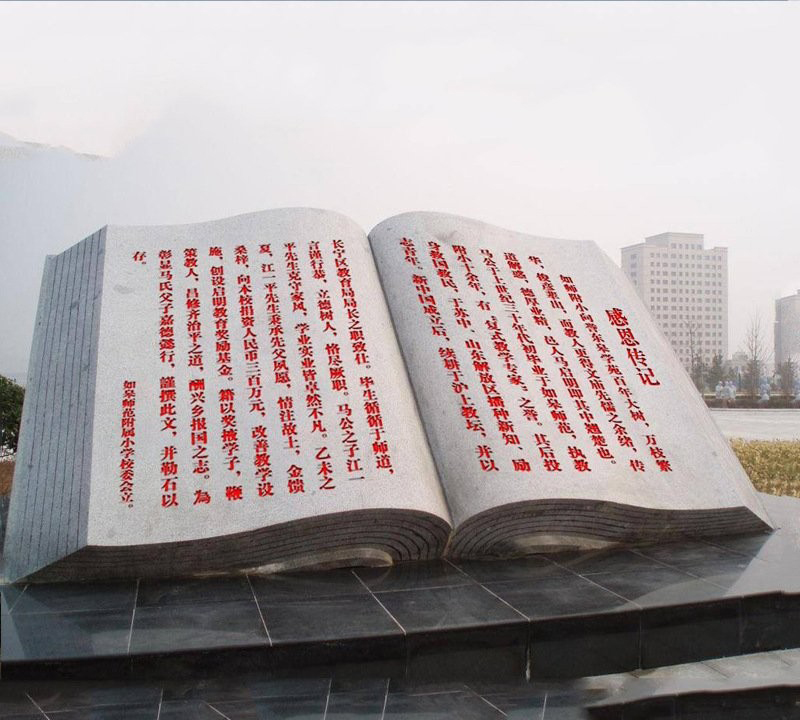 感恩传记
如师附小向誉东吴学苑百年大树，万枝繁
华，俊彦泰山，而教人更得文庙先儒之余绪，传
道解惑，德厚业精，邑人马启明即其中翘楚也。
马公于上世纪三十年代初毕业于如皋师范，执教
附小十余年，有“复式教学专家”之誉。其后投
身教国教民，于苏中、山东解放区播种新知，励
志青年。新中国成立后，续耕于沪上教坛，并以
长宁区教育局局长之职致仕。毕生循循于师道，
言谨行恭，立德树人，恪尽厥职。马公之子江一
平先生克守家风，学业实业皆卓然不凡。乙未之
夏，江一平先生秉承先父夙愿，情注故土，金馈
桑梓，向本校捐资人民币三百万元，改善教学设
施，创设启明教育奖励基金。籍以奖掖学子，鞭
策教人，昌修齐治平之道，酬兴乡报国之志。為
彰显马氏父子嘉德懿行，謹撰此文，并勒石以
存。
如皋师范附属小学校委会立。